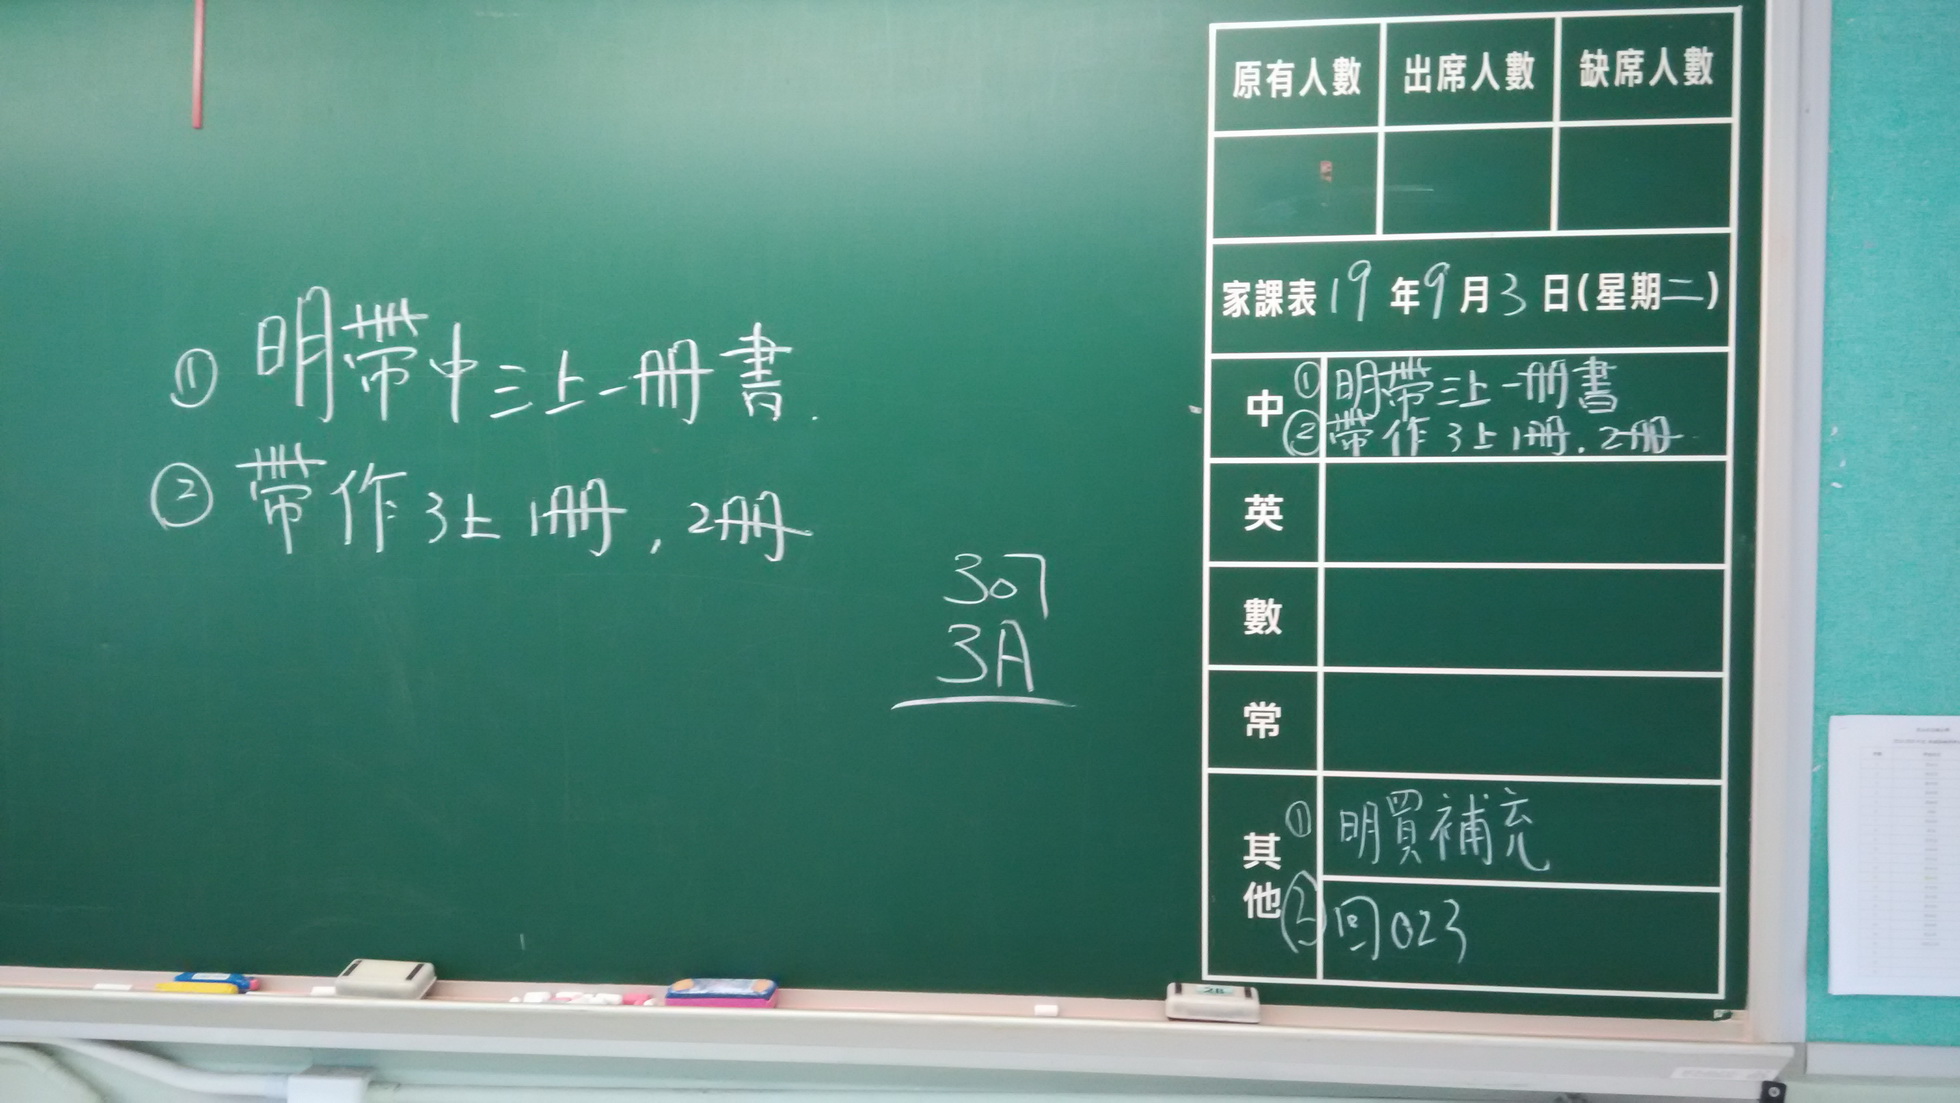 ① 明帶中三上一冊書.
② 帶作3上1冊,2冊
307
3A
原有人數 出席人數 缺席人數
家課表19年9月3日(星期二)
中 ① 明帶三上一冊書
② 帶作3上1冊.2冊
英
數
常
其他 ① 明買補充
② 回023